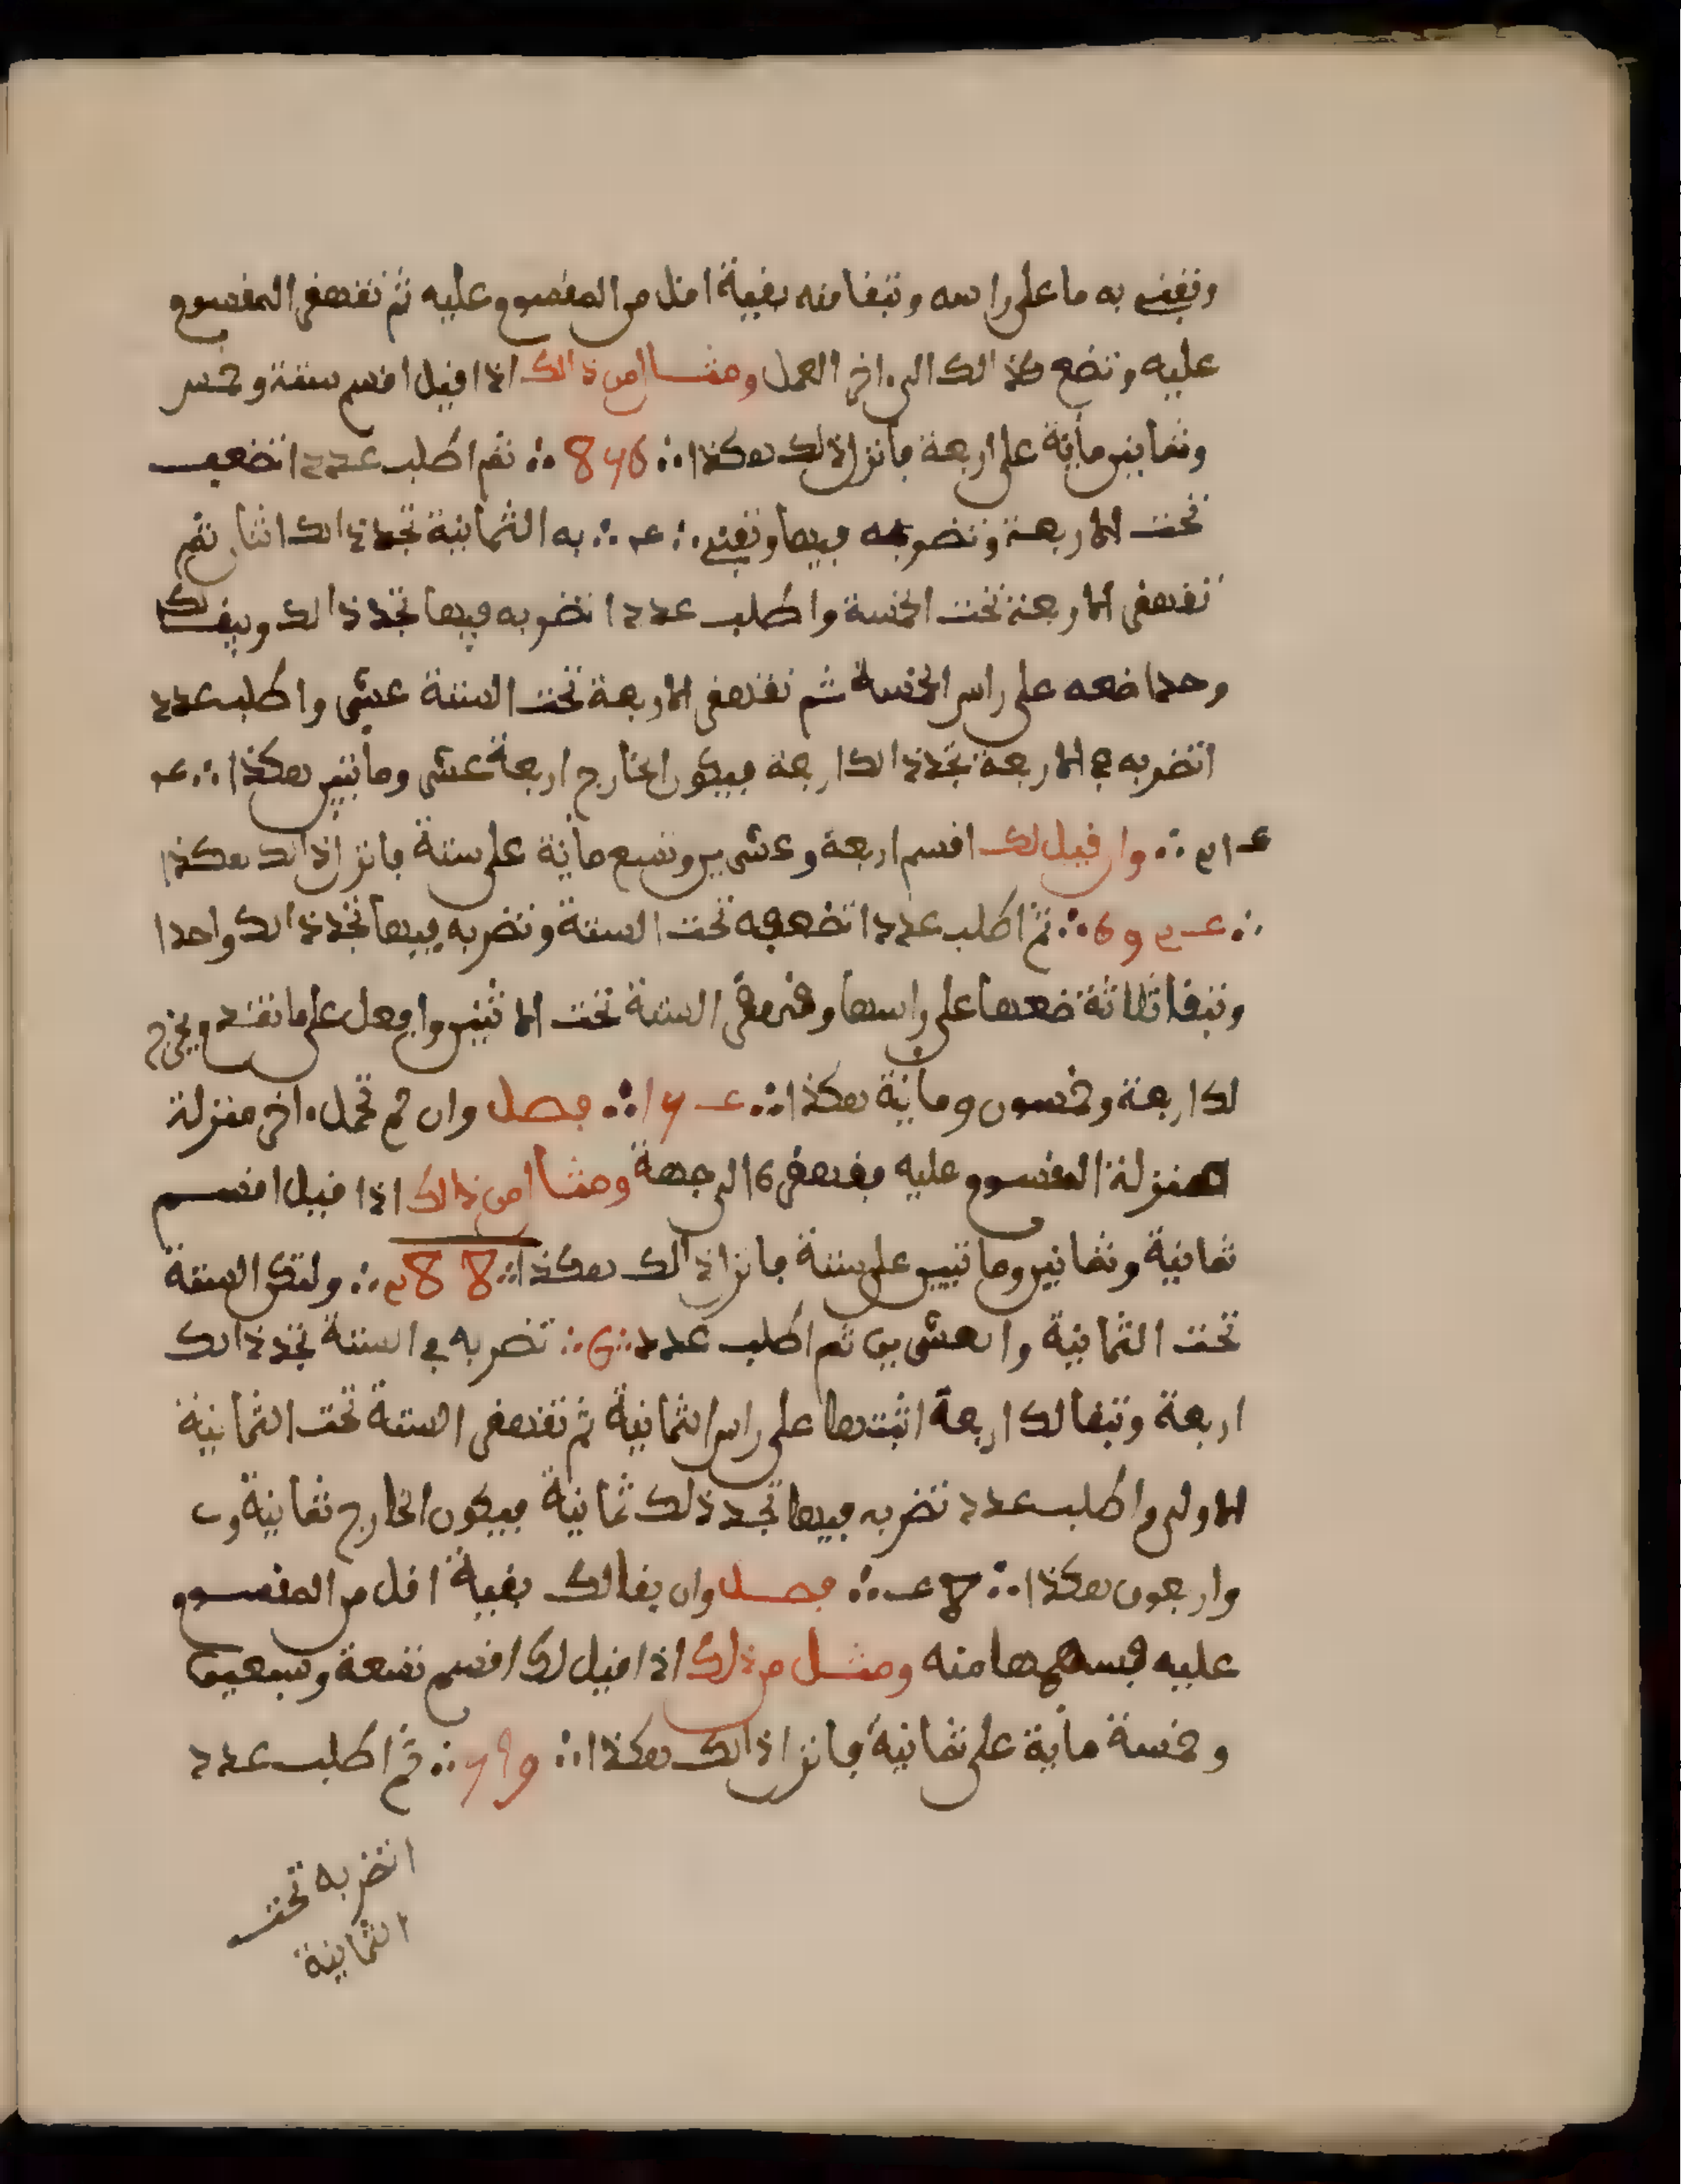 وتفني به ما على راسه وتبقا منه بقية اقل من المقسوم عليه ثم تقهقر المقسوم
عليه وتضع كذالك الى ءاخر العمل ومثــال من ذالك اذا قيل اقسم ستة وخمسين
وثمانين مائة على اربعة فانزل ذلك هكذا ∴ 856 ∴ ثم اطلب عددا تضعه
تحت الاربعة وتضربه فيها وتفني ∴ عـ ∴ به الثمانية تجد ذالك اثنان ثم
تقهقر الاربعة تحت الخمسة واطلب عددا تضربه فيها تجد ذالك ويبقــا لك
وحدا ضعه على راس الخمسة ثم تقهقر الاربعة تحت الستة عشر واطلب عدد
اتضربه في الاربعة تجد ذالك اربعة فيكون الخارج اربعة عشر ومائتين هكذا ∴ عـ
عـ 1 2 ∴ وان قيل لك اقسم اربعة وعشرين وتسع مائة على ستة فانزل ذالك هكذا
∴ عـ 2 و 6 ∴ ثم اطلب عددا تضعه تحت الستة وتضربه فيها تجد ذالك واحدا
وتبقا ثلاثة ضعها على راسها وقهقر الستة تحت الاثنين وافعل على ما تقدم ويخرج
لك اربعة وخمسون ومائة هكذا ∴ عـ 5 1 ∴ فصل وان لم تحمل ءاخر منزلة
المنزلة المقسوم عليه فقهقره الى جهة ومثــال من ذالك اذا قيل اقســم
ثمانية وثمانين ومائتين على ستة فانزل ذالك هكذا ∴ 8 8 2 ∴ ولتكن الستة
تحت الثمانية والعشرين ثم اطلب عدد ∴ 6 ∴ تضربه في الستة تجد ذالك
اربعة وتبقا لك اربعة اثبتها على راس الثمانية ثم تقهقر الستة تحت الثمانية
الاولى واطلب عدد تضربه فيها تجد ذلك ثمانية فيكون الخارج ثمانية و
واربعون هكذا ∴ 8 عـ ∴ فصــل وان بقا لك بقية اقل من المقســوم
عليه فسمها منه ومثــل من ذلك اذا قيل لك اقسم تسعة وسبعين
وخمسة مائة على ثمانية فانزل ذالك هكذا ∴ 9 7 5 ∴ ثم اطلب عدد
اتضربه تحت
الثمانية